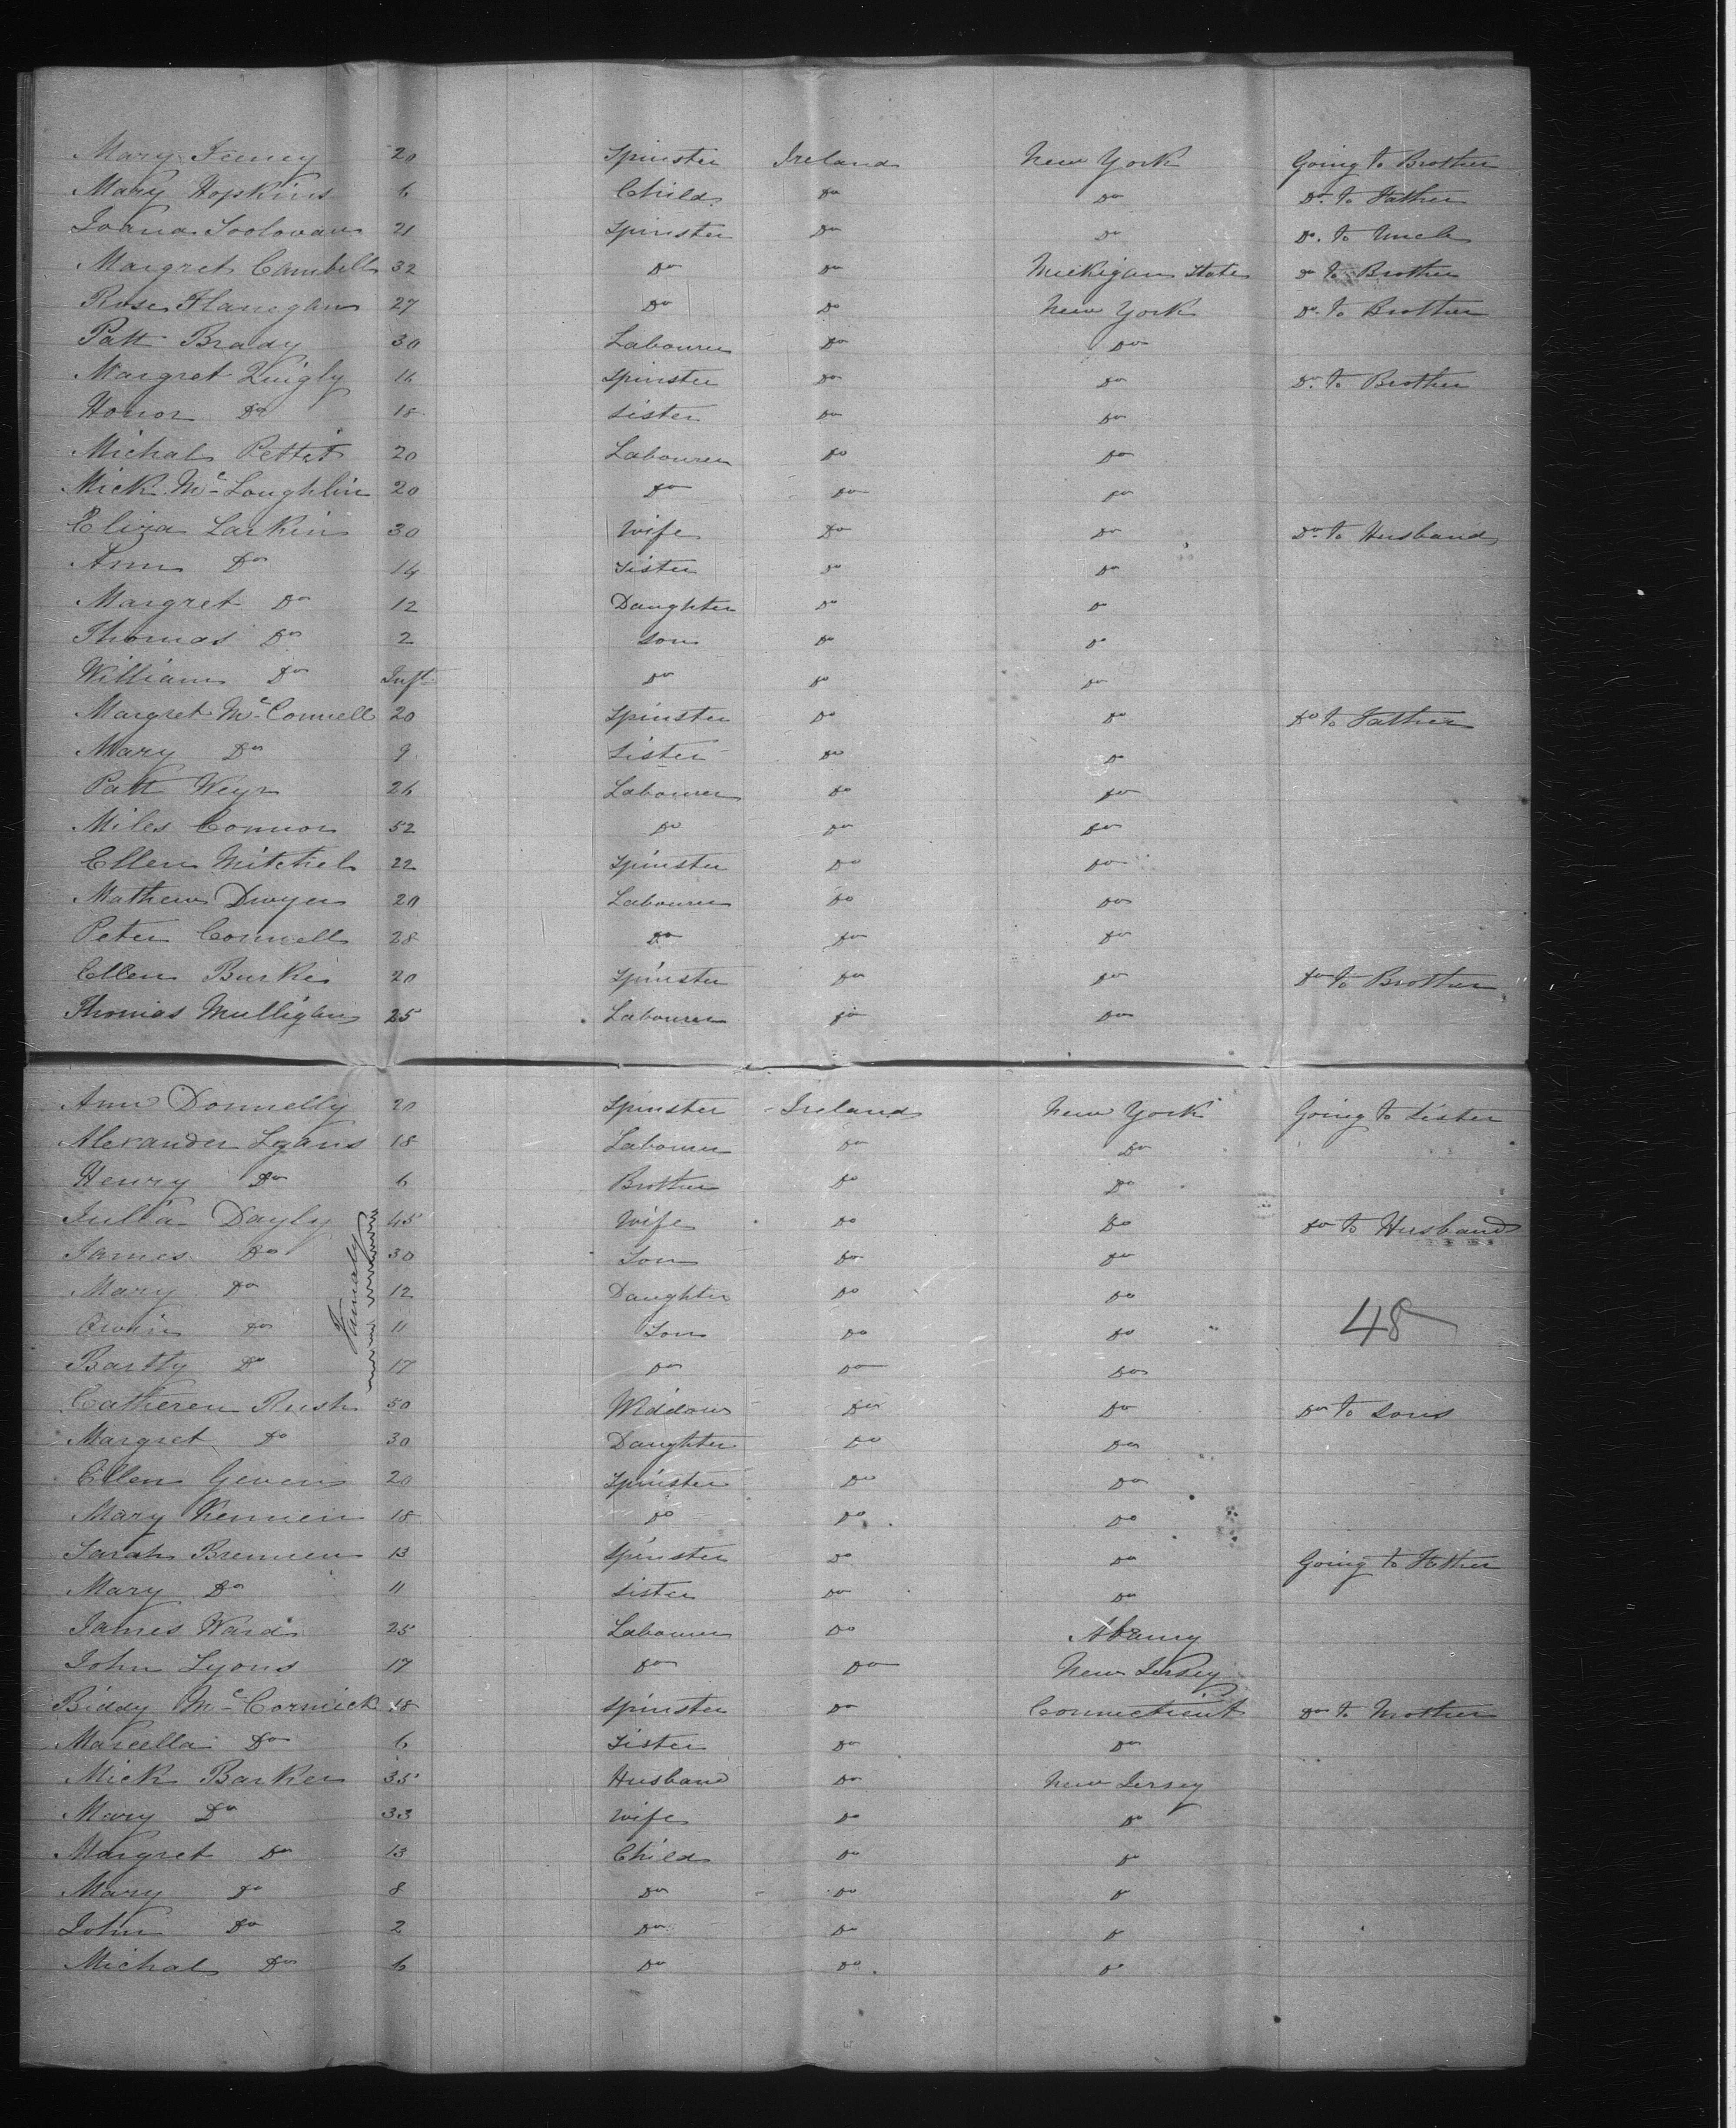 Mary Feeney 20 Spinster Ireland New York Going to Brother
Mary Hopkins 6 Child Do Do Do to Father
Joana 21 Spinster Do Do Do to Uncle
Margret Cambell 32 Do Do Michigan State Do to Brother
Rose Flanegan 27 Do Do New York Do to Brother
Patt Brady 30 Labourer Do Do
Margret Quigly 16 Spinster Do Do Do to Brother
Honor Do 18 Sister Do Do
Michal Pettit 20 Labourer Do Do
Mick Mc Loughlin 20 Do Do Do
Eliza Larkin 30 Wife Do Do Do to Husband
Ann Do 14 Sister Do Do
Margret Do 12 Daughter Do Do
Thomas Do 2 Son Do Do
William Do Inft Do Do Do
Margret Mc Connell 20 Spinster Do Do Do to Father
Mary Do 9 Sister Do Do
Patt Keyr 26 Labourer Do Do
Miles Connor 52 Do Do Do
Ellen Mitchel 22 Spinster Do Do
Mathew Dwyer 20 Labourer Do Do
Peter Connell 28 Do Do Do
Ellen Burke 20 Spinster Do Do Do to Brother
Thomas Mulligan 25 Labourer Do Do
Ann Donnelly 20 Spinster Ireland New York Going to Sister
Alexander Lyans 18 Labourer Do Do
Henry Do 6 Brother Do Do
Julia Dayly 45 Wife Do Do Do to Husband
James Do 30 Son Do Do
Mary Do 12 Daughter Do Do
Owin Do 11 Son Do Do
Bartly Do 17 Do Do Do
Famaly
48
Catheren Rush 50 Widdow Do Do Do to Sons
Margret Do 30 Daughter Do Do
Ellen Geven 20 Spinster Do Do
Mary Kennien 18 Do Do Do
Sarah Brennen 13 Spinster Do Do Going to Father
Mary Do 11 Sister Do Do
James Ward 25 Labourer Do Abany
John Lyons 17 Do Do New Jersey
Biddy Mc Cormick 18 Spinster Do Connecticut Do to Mother
Marcella Do 6 Sister Do Do
Mick Barker 35 Husband Do New Jersey
Mary Do 33 Wife Do Do
Margret Do 13 Child Do Do
Mary Do 8 Do Do Do
John Do 2 Do Do Do
Michal Do 6 Do Do Do